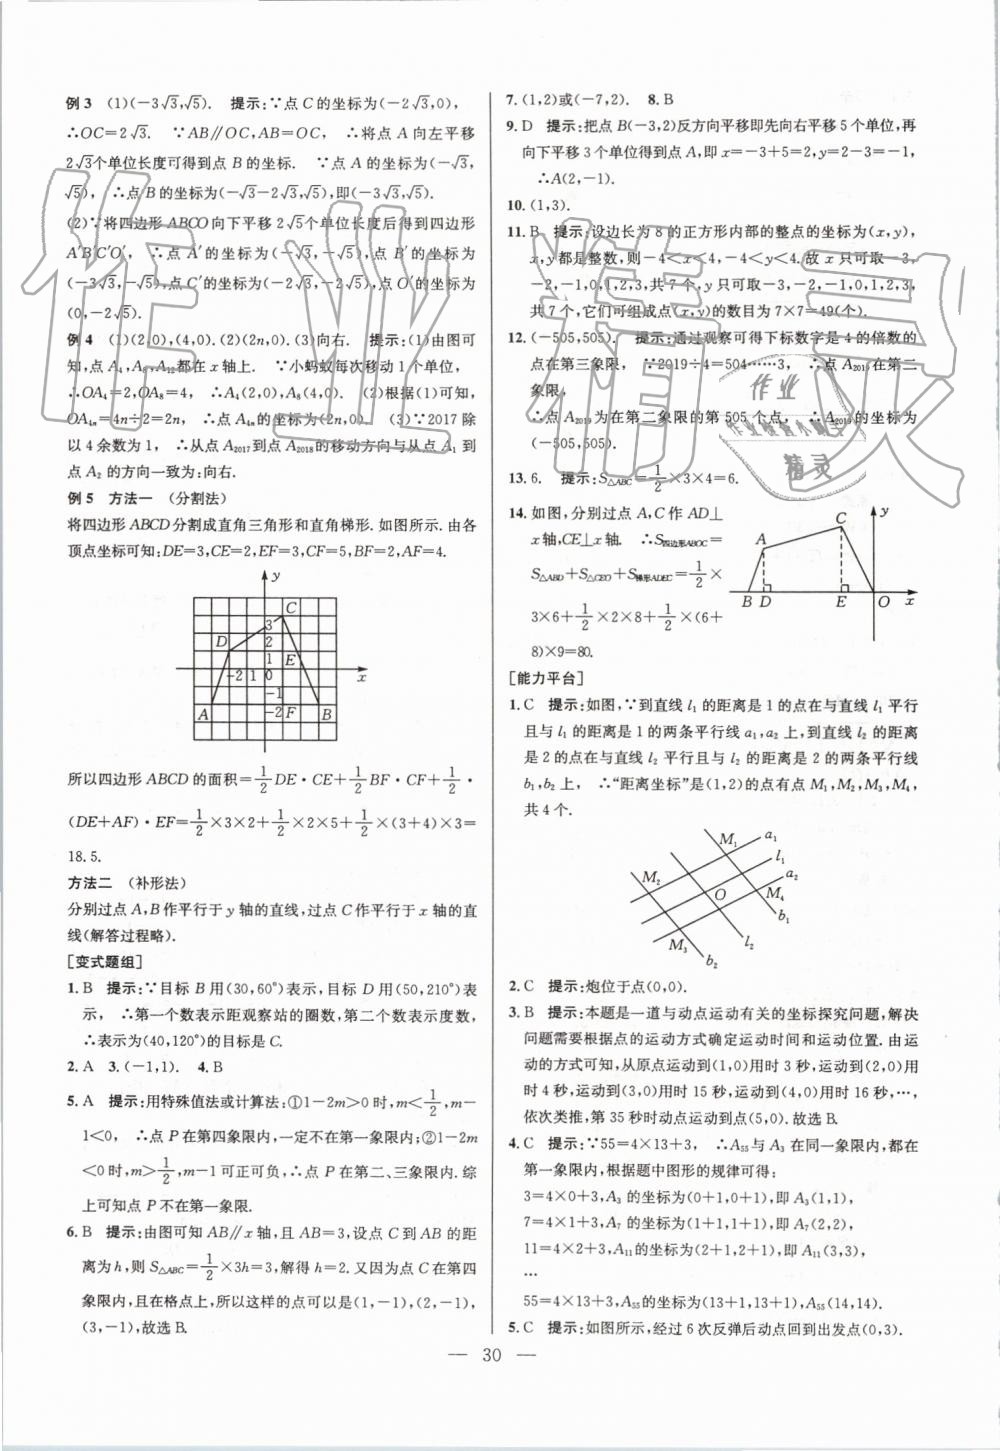 例3 (1)(-3√3,√5). 提示:∵点C的坐标为(-2√3,0),
∴OC=2√3. ∵AB∥OC,AB=OC, ∴将点A向左平移
2√3个单位长度可得到点B的坐标. ∵点A的坐标为(-√3,
√5), ∴点B的坐标为(-√3-2√3,√5),即(-3√3,√5).
(2)∵将四边形ABCO向下平移2√5个单位长度后得到四边形
A′B′C′O′, ∴点A′的坐标为(-√3,-√5),点B′的坐标为
(-3√3,-√5),点C′的坐标为(-2√3,-2√5),点O′的坐标为
(0,-2√5).
例4 (1)(2,0),(4,0).(2)(2n,0).(3)向右. 提示:(1)由图可
知,点A₄,A₈,A₁₂都在x轴上. ∵小蚂蚁每次移动1个单位,
∴OA₄=2,OA₈=4, ∴A₄(2,0),A₈(4,0).(2)根据(1)可知,
OA₄ₙ=4n÷2=2n, ∴点A₄ₙ的坐标为(2n,0). (3)∵2017除
以4余数为1, ∴从点A₂₀₁₇到点A₂₀₁₈的移动方向与从点A₁到
点A₂的方向一致为:向右.
例5 方法一 (分割法)
将四边形ABCD分割成直角三角形和直角梯形.如图所示.由各
顶点坐标可知:DE=3,CE=2,EF=3,CF=5,BF=2,AF=4.
y
C
3
D
2
1
E
-2 1 0
x
-1
A
-2
F
B
所以四边形ABCD的面积=1/2DE·CE+1/2BF·CF+1/2·
(DE+AF)·EF=1/2×3×2+1/2×2×5+1/2×(3+4)×3=
18.5.
方法二 (补形法)
分别过点A,B作平行于y轴的直线,过点C作平行于x轴的直
线(解答过程略).
[变式题组]
1. B 提示:∵目标B用(30,60°)表示,目标D用(50,210°)表
示, ∴第一个数表示距观察站的圈数,第二个数表示度数,
∴表示为(40,120°)的目标是C.
2. A 3. (-1,1). 4. B
5. A 提示:用特殊值法或计算法:①1-2m>0时,m<1/2,m-
1<0, ∴点P在第四象限内,一定不在第一象限内;②1-2m
<0时,m>1/2,m-1可正可负,∴点P在第二、三象限内.综
上可知点P不在第一象限.
6. B 提示:由图可知AB∥x轴,且AB=3,设点C到AB的距
离为h,则S△ABC=1/2×3h=3,解得h=2.又因为点C在第四
象限内,且在格点上,所以这样的点可以是(1,-1),(2,-1),
(3,-1),故选B.
7. (1,2)或(-7,2). 8. B
9. D 提示:把点B(-3,2)反方向平移即先向右平移5个单位,再
向下平移3个单位得到点A,即x=-3+5=2,y=2-3=-1,
∴A(2,-1).
10. (1,3).
11. B 提示:设边长为8的正方形内部的整点的坐标为(x,y),
x,y都是整数,则-4<x<4,-4<y<4.故x只可取-3,
-2,-1,0,1,2,3,共7个,y只可取-3,-2,-1,0,1,2,3,
共7个,它们可组成点(x,y)的数目为7×7=49(个).
12. (-505,505). 提示:通过观察可得下标数字是4的倍数的
点在第三象限, ∵2019÷4=504……3, ∴点A₂₀₁₉在第二
象限,
∴点A₂₀₁₉为在第二象限的第505个点, ∴A₂₀₁₉的坐标为
(-505,505).
13. 6. 提示:S△ABC=1/2×3×4=6.
14. 如图,分别过点A,C作AD⊥
x轴,CE⊥x轴. ∴S四边形ABOC=
S△ABD+S△CEO+S梯形ADEC=1/2×
3×6+1/2×2×8+1/2×(6+
8)×9=80.
y
C
A
B D E O x
[能力平台]
1. C 提示:如图,∵到直线l₁的距离是1的点在与直线l₁平行
且与l₁的距离是1的两条平行线a₁,a₂上,到直线l₂的距离
是2的点在与直线l₂平行且与l₂的距离是2的两条平行线
b₁,b₂上, ∴“距离坐标”是(1,2)的点有点M₁,M₂,M₃,M₄,
共4个.
M₁
a₁
l₁
M₂
a₂
O
M₄
b₁
M₃
l₂
b₂
2. C 提示:炮位于点(0,0).
3. B 提示:本题是一道与动点运动有关的坐标探究问题,解决
问题需要根据点的运动方式确定运动时间和运动位置.由运
动的方式可知,从原点运动到(1,0)用时3秒,运动到(2,0)用
时4秒,运动到(3,0)用时15秒,运动到(4,0)用时16秒,…,
依次类推,第35秒时动点运动到点(5,0).故选B.
4. C 提示:∵55=4×13+3, ∴A₅₅与A₃在同一象限内,都在
第一象限内,根据题中图形的规律可得:
3=4×0+3,A₃的坐标为(0+1,0+1),即A₃(1,1),
7=4×1+3,A₇的坐标为(1+1,1+1),即A₇(2,2),
11=4×2+3,A₁₁的坐标为(2+1,2+1),即A₁₁(3,3),
…
55=4×13+3,A₅₅的坐标为(13+1,13+1),A₅₅(14,14).
5. C 提示:如图所示,经过6次反弹后动点回到出发点(0,3).
— 30 —
作业精灵
作业
精灵